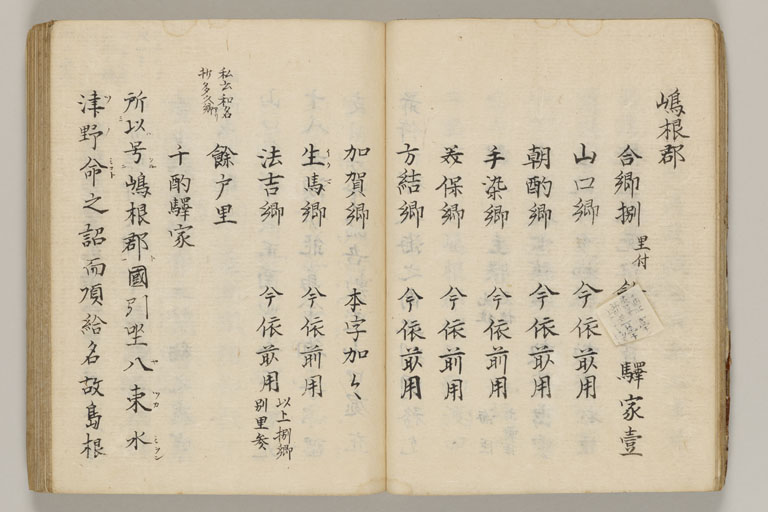 嶋根郡
合郷捌 里付 驛家壹
山口郷 今依前用
朝酌郷 今依前用
手染郷 今依前用
美保郷 今依前用
方結郷 今依前用
加賀郷 本字加〻
生馬郷 今依前用
法吉郷 今依前用 以上捌郷
別里参
餘戸里
私云和名
千酌驛家
所以号嶋根郡國引坐八束水
津野命之詔而項給名故島根